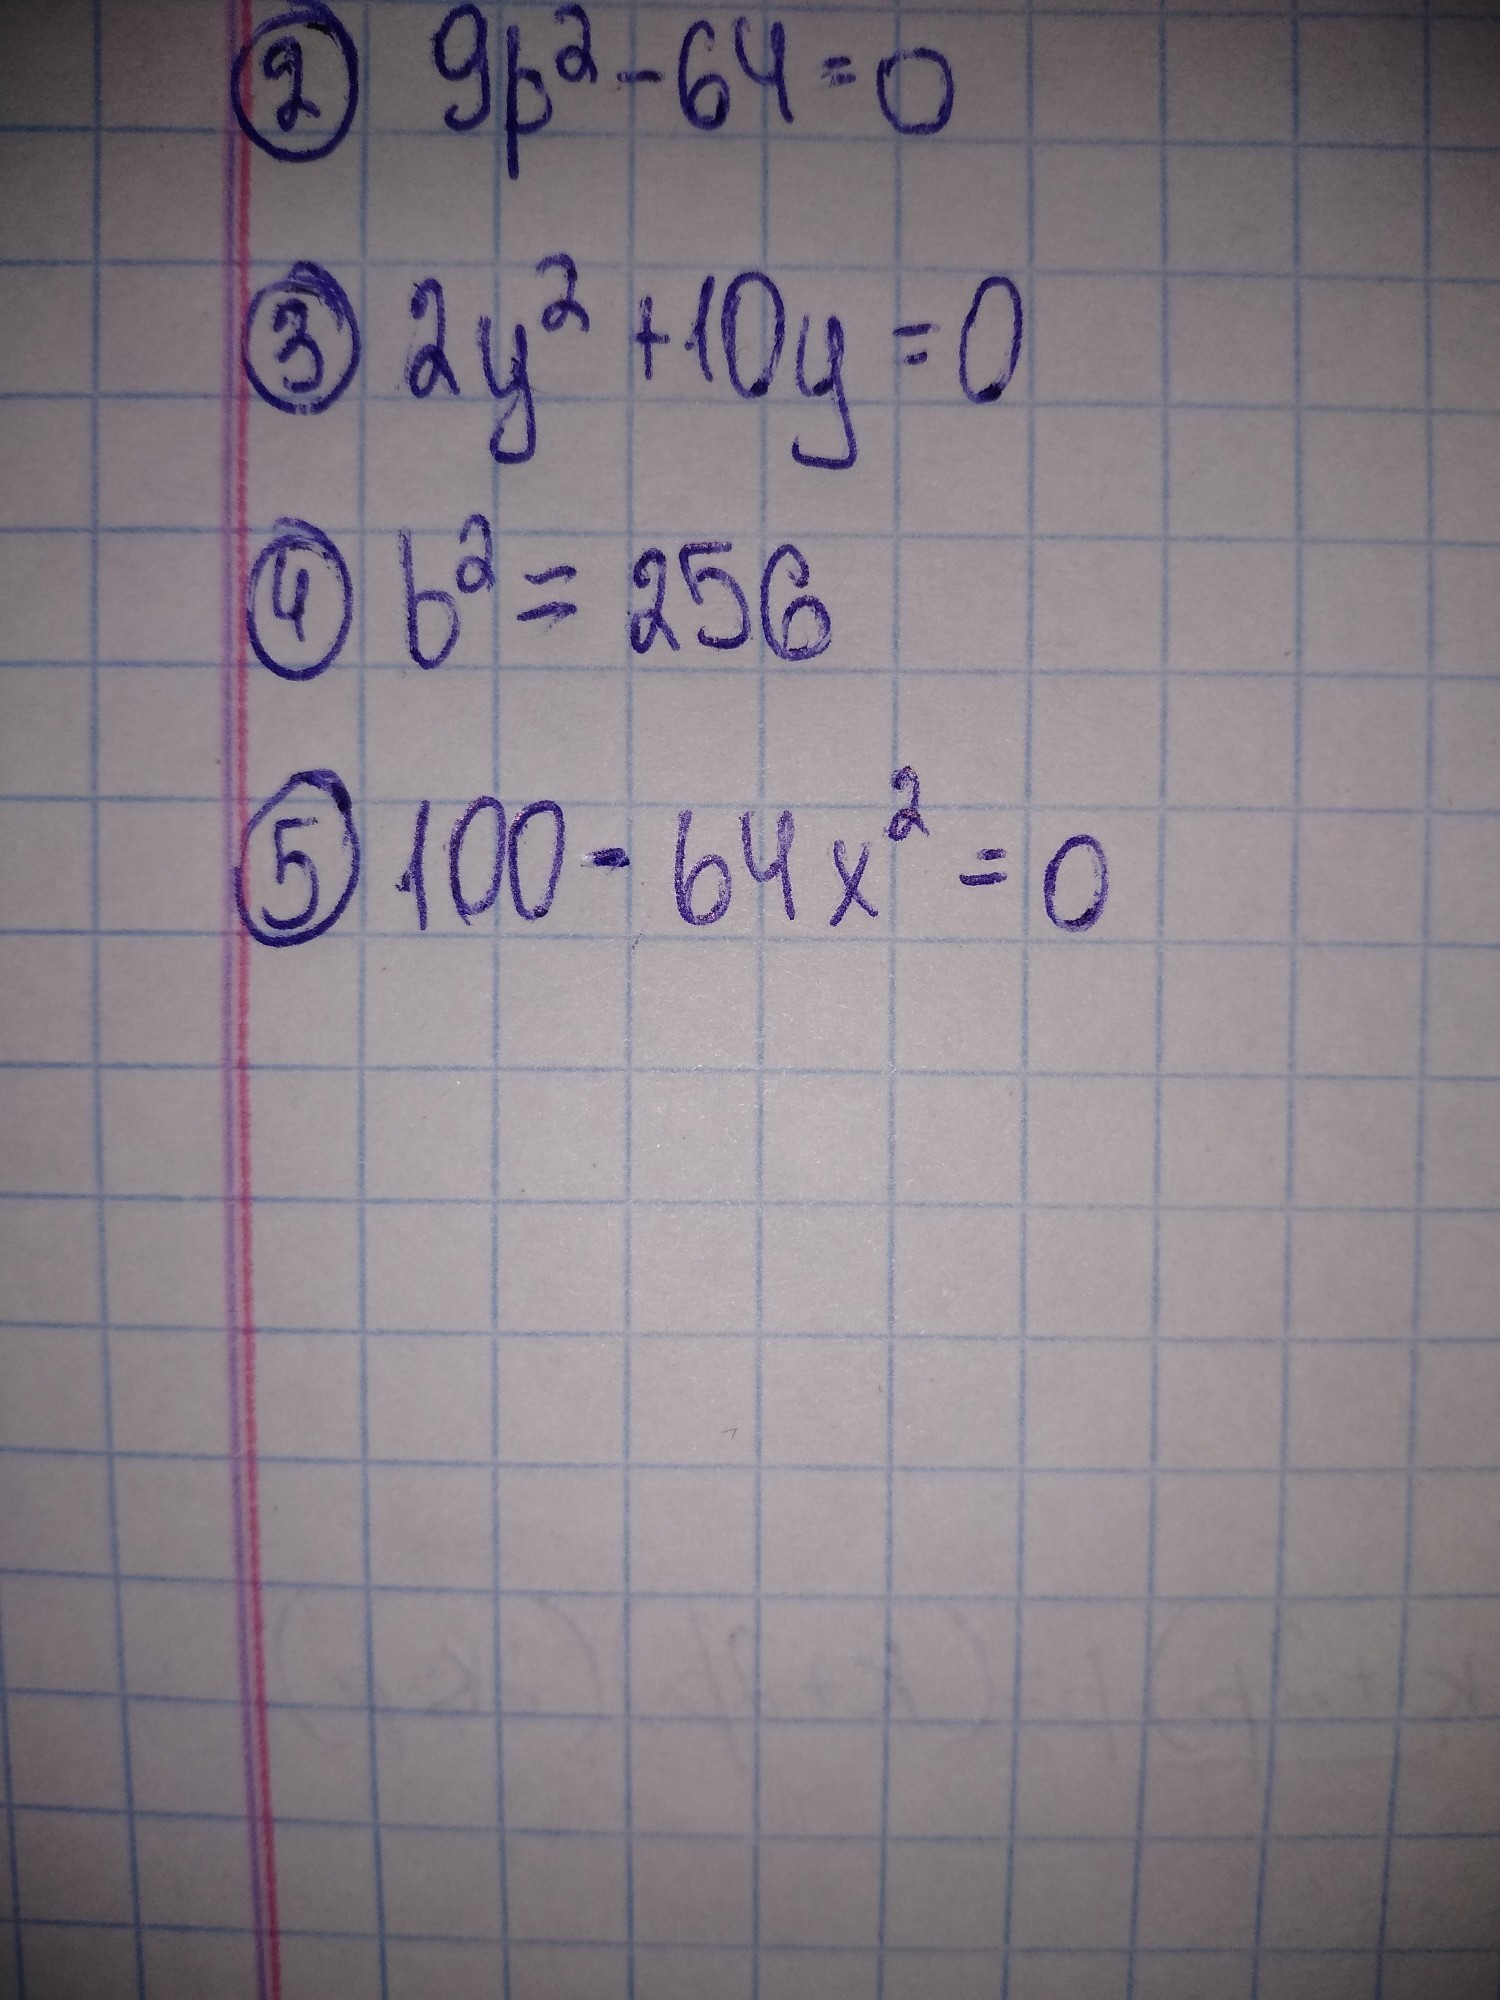 ② 9p² - 64 = 0
③ 2y² + 10y = 0
④ b² = 256
⑤ 100 - 64x² = 0